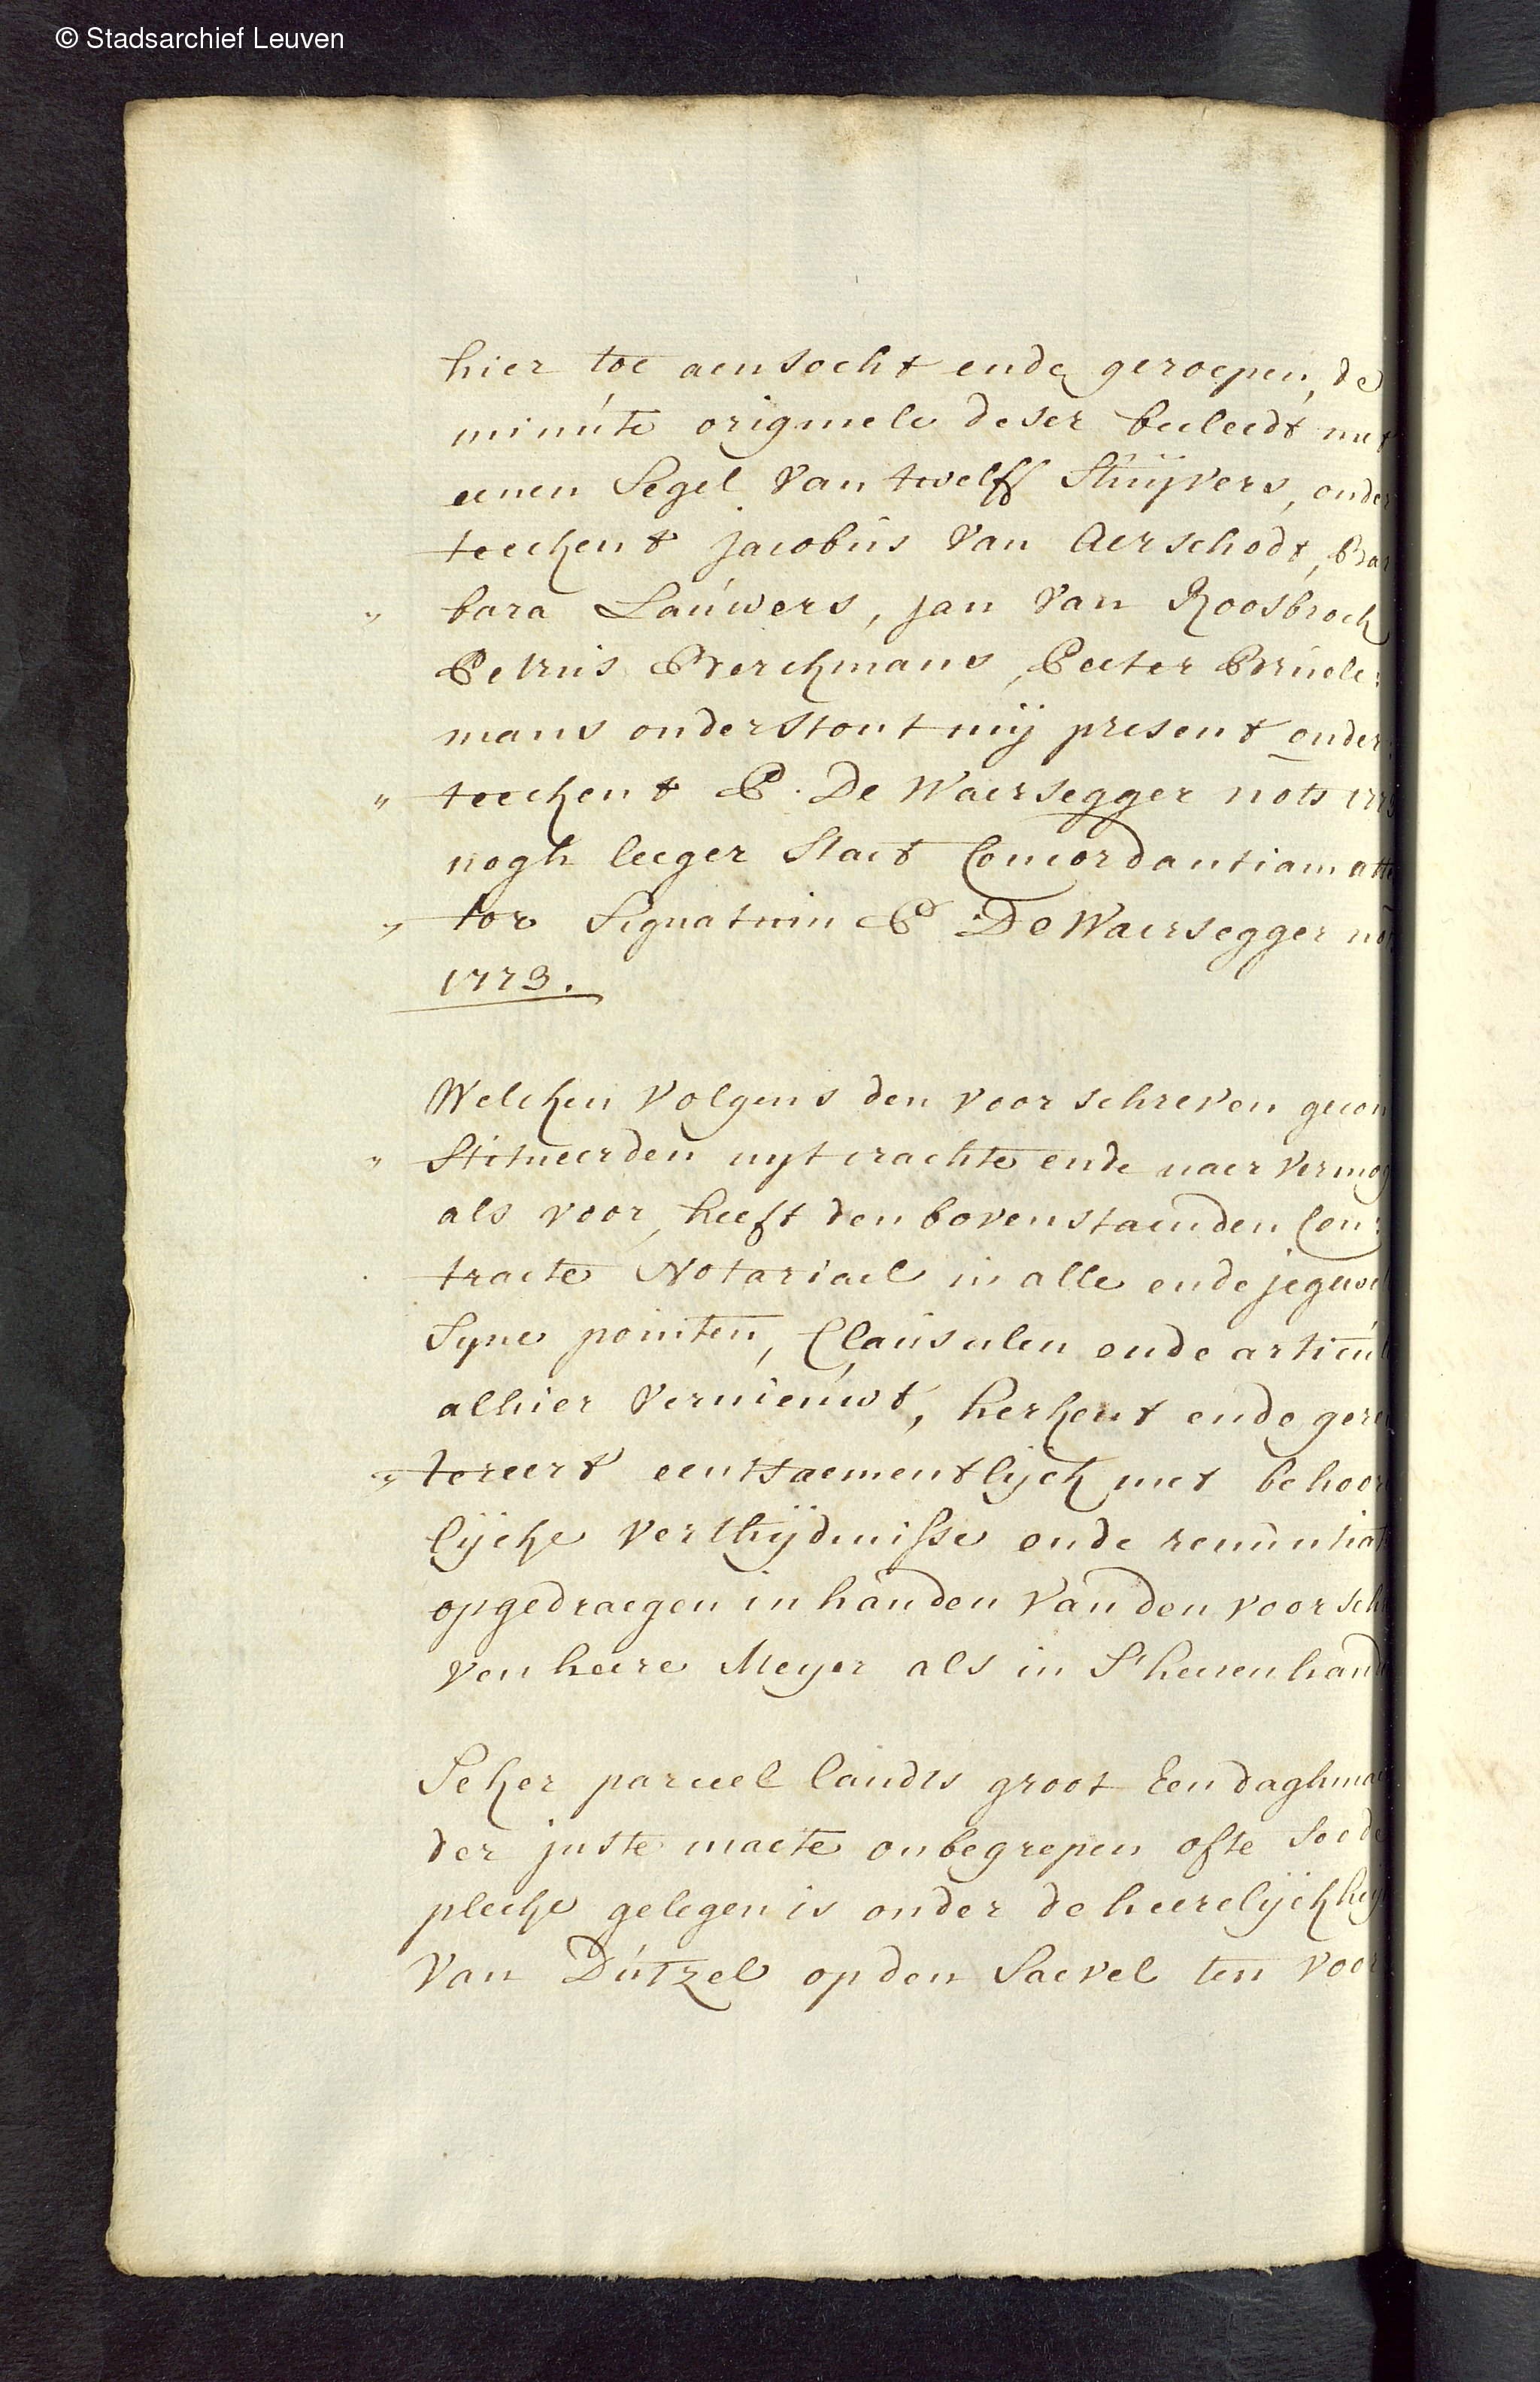 © Stadsarchief Leuven
hier toe aensocht ende geroepen, de
minute originele deser becleedt met
eenen Segel van twelff Stuyvers, onder
teeckent jacobus van Aerschodt, Bar
bara Lauwers, jan van Roosbroek
Petrus Berckmans, Peeter Bruele:
mans onderstont mij present onder:
teeckent P. De Waersegger nots 1773
nogh leeger Staet Concordantiam atte
tor Signatum P De Waersegger not
1773.
Welcken volgens den voorschreven gecon
Stitueerden uyt crachte ende naer vermog
als voor, heeft den bovenstaenden Con:
tracte Notariael in alle ende jegewel
Syne pointen, Clausulen ende articule
alhier vernieuwt, herkent ende gerei
tereert eentsaementlijck met behoor
lijcke verthijdenisse ende renuntiat
opgedraegen in handen van den voorschr
ven heere Meyer als in S'heeren hand
Seker parceel landts groot Een daghmae
der juste maete onbegrepen ofte soo de
plecke gelegen is onder de heerelijckhey
van Dutzel op den Saevel ten voor